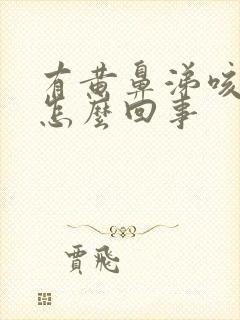 有黄鼻涕咳
怎麼回事
賈飛